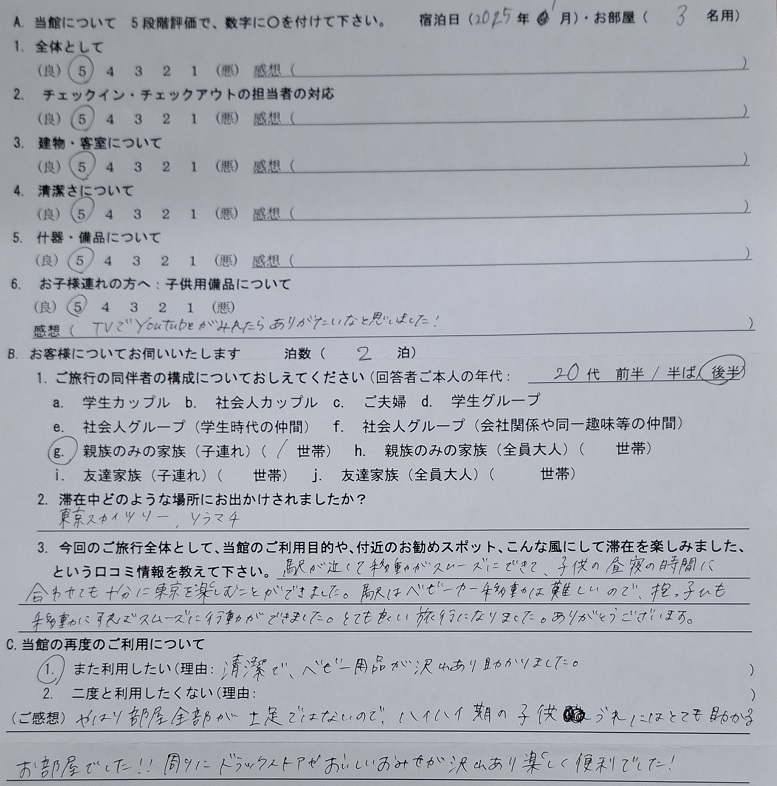 A. 当館について 5段階評価で、数字に〇を付けて下さい。 宿泊日（2025年 1月）・お部屋（ 3 名用）
1. 全体として
（良） 5 4 3 2 1 （悪） 感想（ ）
2. チェックイン・チェックアウトの担当者の対応
（良） 5 4 3 2 1 （悪） 感想（ ）
3. 建物・客室について
（良） 5 4 3 2 1 （悪） 感想（ ）
4. 清潔さについて
（良） 5 4 3 2 1 （悪） 感想（ ）
5. 什器・備品について
（良） 5 4 3 2 1 （悪） 感想（ ）
6. お子様連れの方へ：子供用備品について
（良） 5 4 3 2 1 （悪）
感想（ TVでYouTubeがみれたらありがたいなと思いました! ）
B. お客様についてお伺いいたします 泊数（ 2 泊）
1. ご旅行の同伴者の構成についておしえてください（回答者ご本人の年代： 20代 前半 / 半ば 後半
a. 学生カップル b. 社会人カップル c. ご夫婦 d. 学生グループ
e. 社会人グループ（学生時代の仲間） f. 社会人グループ（会社関係や同一趣味等の仲間）
g. 親族のみの家族（子連れ）（ 1 世帯） h. 親族のみの家族（全員大人）（ 世帯）
i. 友達家族（子連れ）（ 世帯） j. 友達家族（全員大人）（ 世帯）
2. 滞在中どのような場所にお出かけされましたか？
東京スカイツリー、ソラマチ
3. 今回のご旅行全体として、当館のご利用目的や、付近のお勧めスポット、こんな風にして滞在を楽しみました、
という口コミ情報を教えて下さい。 駅が近くて移動がスムーズにできて、子供の昼寝の時間に
合わせても十分に東京を楽しむことができました。駅はベビーカー移動は難しいので、抱っこひも
移動にすればスムーズに行動ができました。とても良い旅行になりました。ありがとうございます。
C. 当館の再度のご利用について
1. また利用したい（理由： 清潔で、ベビー用品が沢山あり助かりました。 ）
2. 二度と利用したくない（理由： ）
（ご感想） やはり部屋全部が土足ではないので、ハイハイ期の子供づれにはとても助かる
お部屋でした!! 周りにドラックストアやおいしいおみせが沢山あり楽しく便利でした!